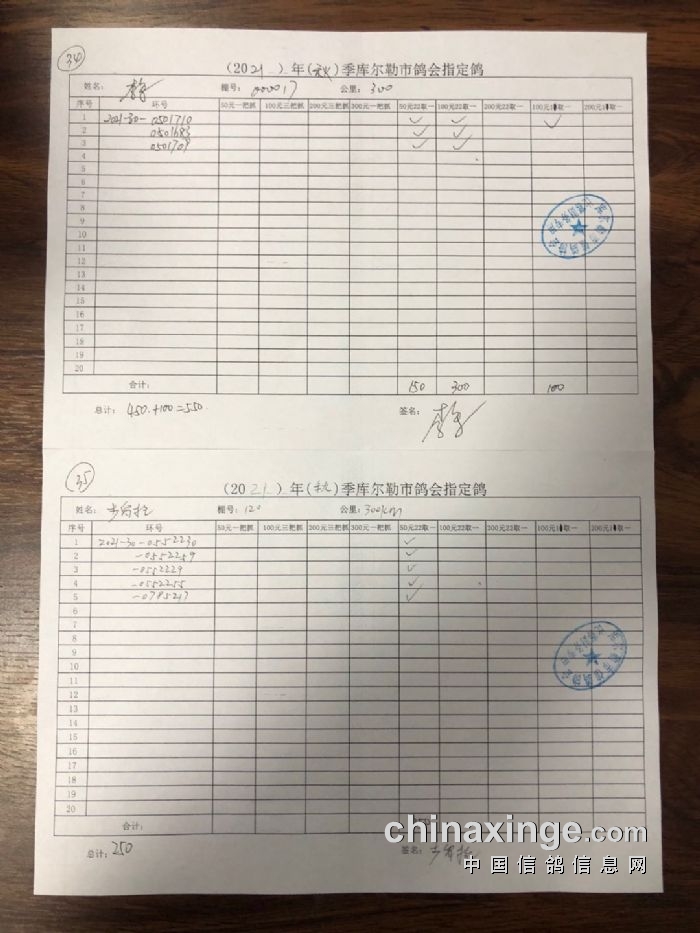 34
(2021)年(秋)季库尔勒市鸽会指定鸽
姓名: 棚号: 000017 公里: 300
序号 环号 50元一把抓 100元三把抓 200元三把抓 300元一把抓 50元22取一 100元22取一 200元22取一 100元1取一 200元1取一
1 2021-30-0501710 ✓ ✓ ✓
2 0501683 ✓ ✓
3 0501709 ✓ ✓
4
5
6
7
8
9
10
11
12
13
14
15
16
17
18
19
20
合计: 150 300 100
总计: 450+100=550 签名:
35
(2021)年(秋)季库尔勒市鸽会指定鸽
姓名: 棚号: 120 公里: 300km
序号 环号 50元一把抓 100元三把抓 200元三把抓 300元一把抓 50元22取一 100元22取一 200元22取一 100元1取一 200元1取一
1 2021-30-0552230 ✓
2 -0552259 ✓
3 -0552229 ✓
4 -0552255 ✓
5 -0785217 ✓
6
7
8
9
10
11
12
13
14
15
16
17
18
19
20
合计:
总计: 250 签名:
chinaxinge.com
中国信鸽信息网